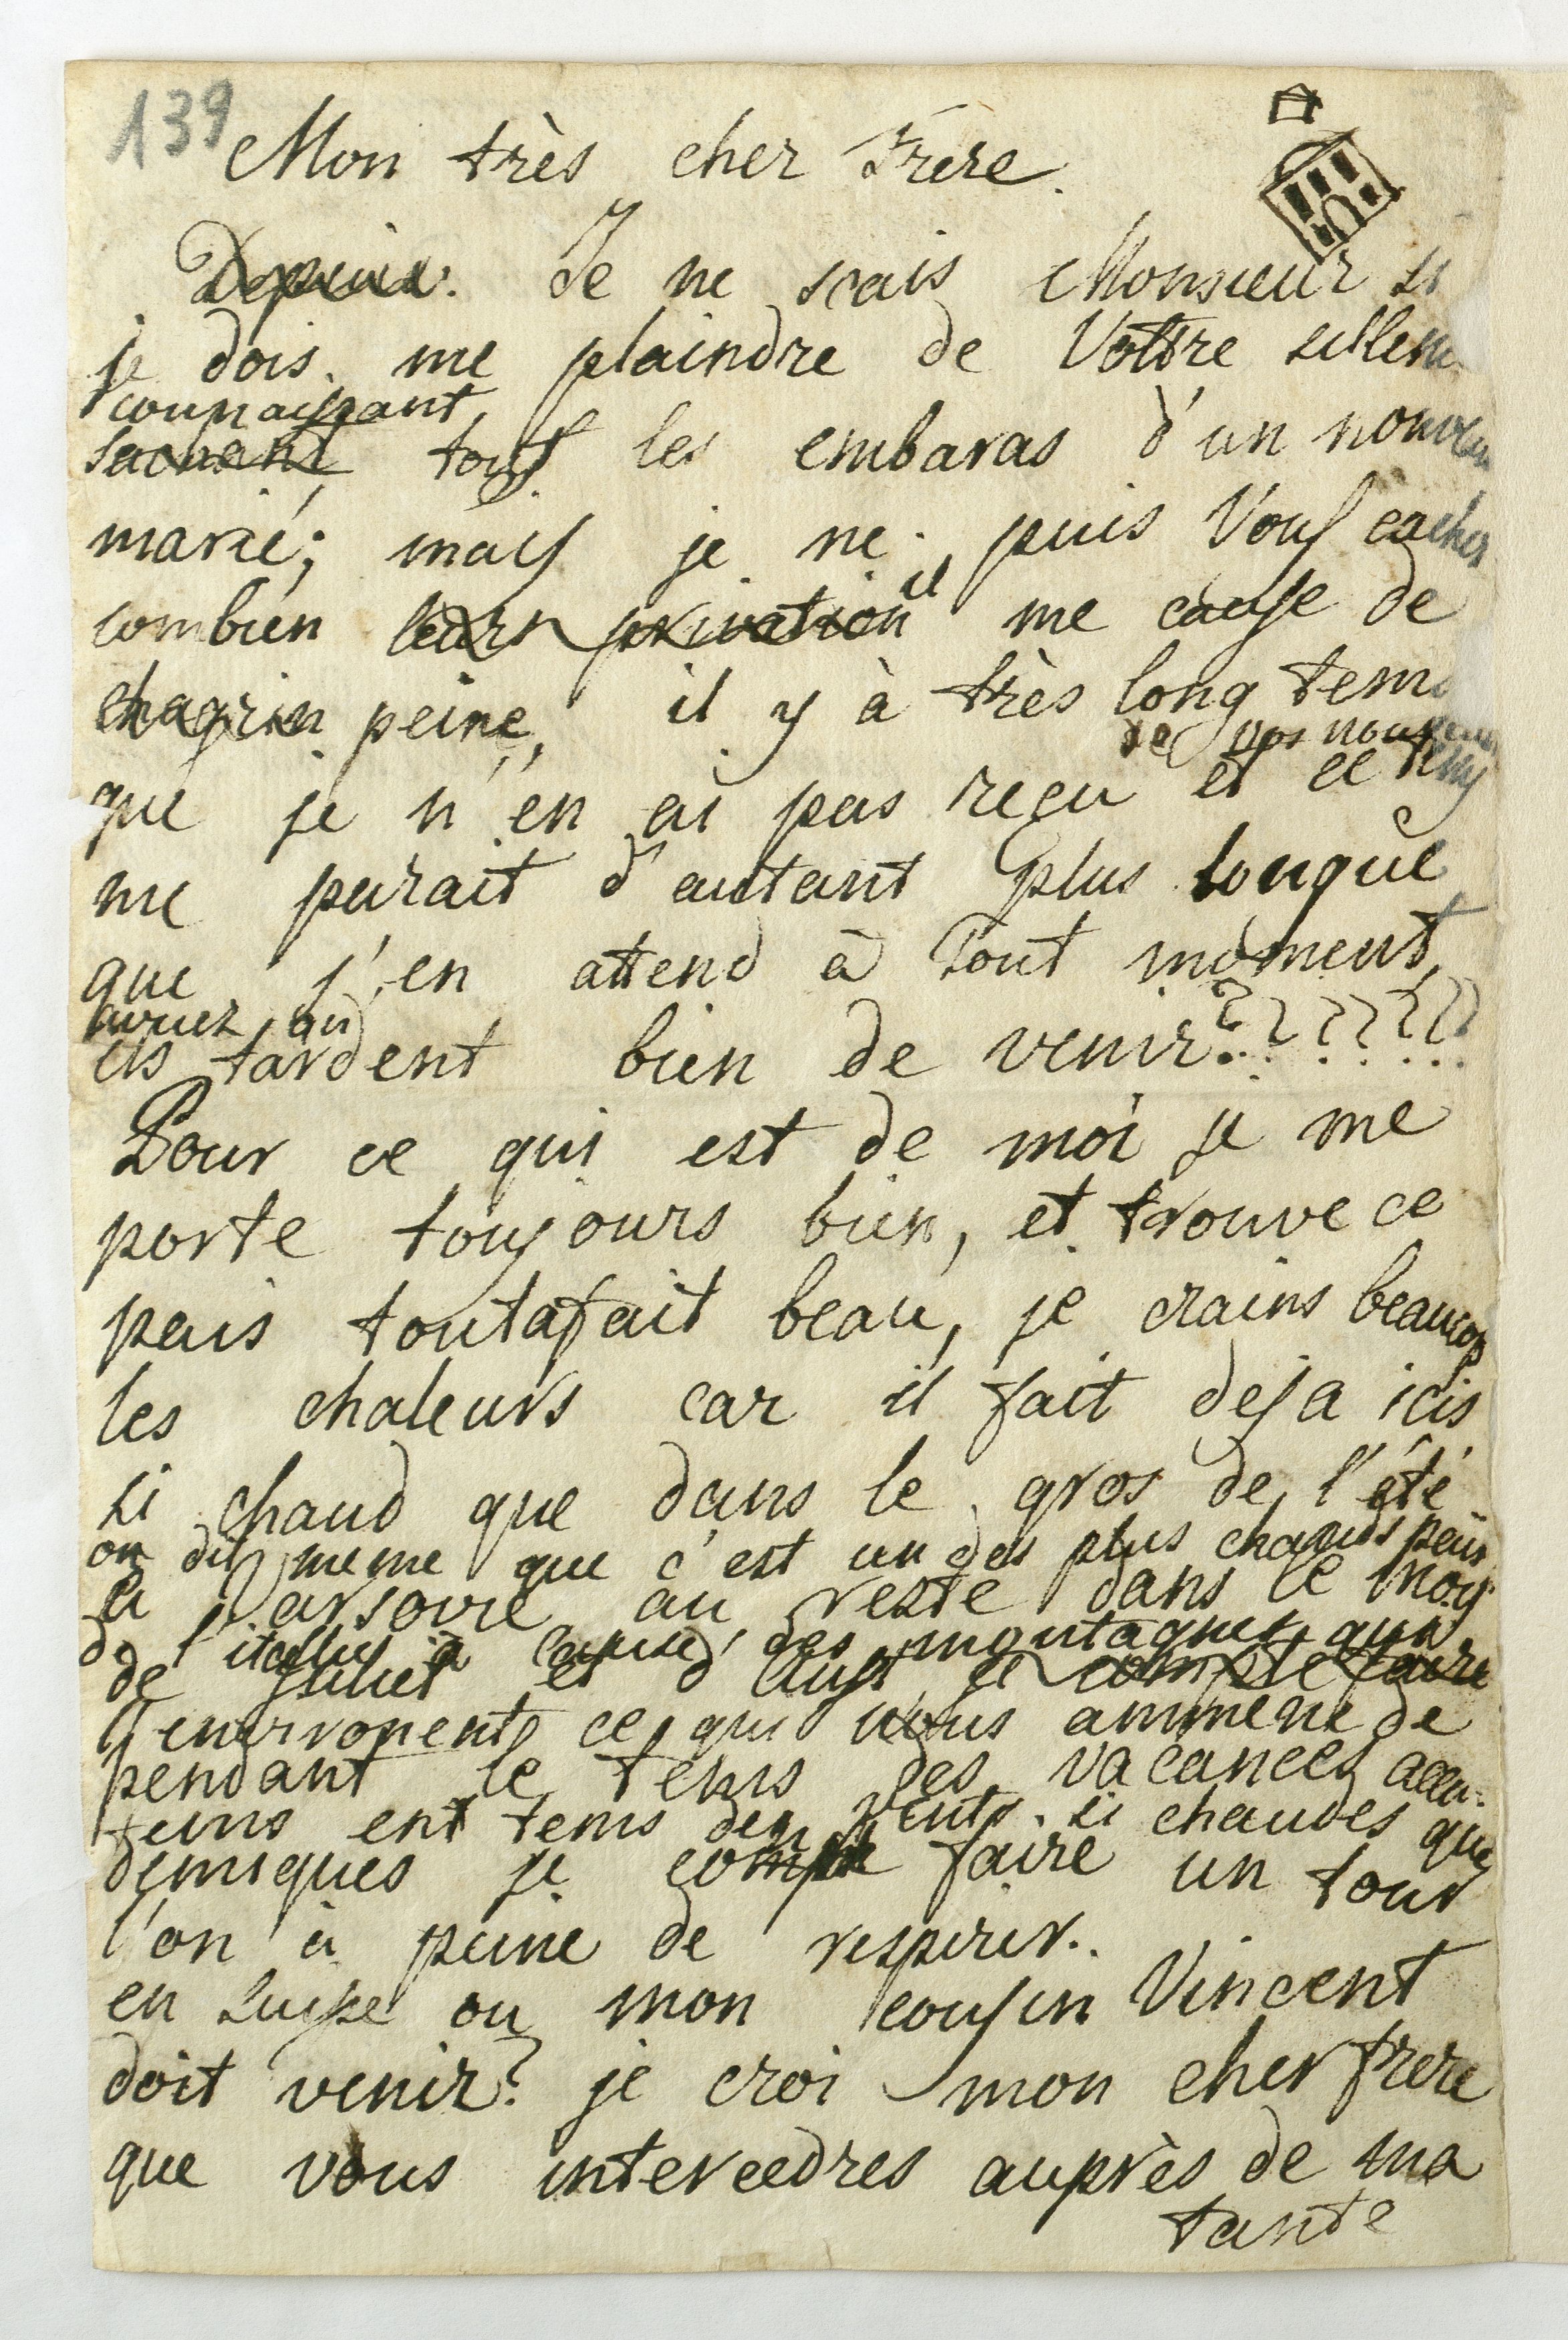 139
Mon très cher Frere.
Depuis. Je ne scais Monsieur si
je dois me plaindre de Vottre sillen
connaissant
sachant tous les embaras d'un nouveau
marié; mais je ne puis Vous cacher
il
combien leurs privation me cause de
chagrin peine, il y à très long tems
de vos nouvelles
que je n'en ai pas reçu et ce tems
me parait d'autant plus longue
que j'en attend à tout moment,
ils tardent bien de venir???????
Pour ce qui est de moi je me
porte toujours bien, et trouve ce
pais toutafait beau, je crains beaucop
les chaleurs car il fait deja icis
si chaud que dans le gros de l'été
on dit meme que c'est un des plus chauds païs
a Varsovie au reste dans le mois
de l'itallie à cause des montagnes qui
de Juliet et d'Aust je compte faire
l'environent ce qui nous ammene de
pendant le tems des vacances acca-
tems ent tems des vents si chaudes que
demiques je compte faire un tour
l'on à peine de respirer.
en Suisse ou mon cousin Vincent
doit venir? je croi mon cher frere
que vous intercedres auprès de ma
tante